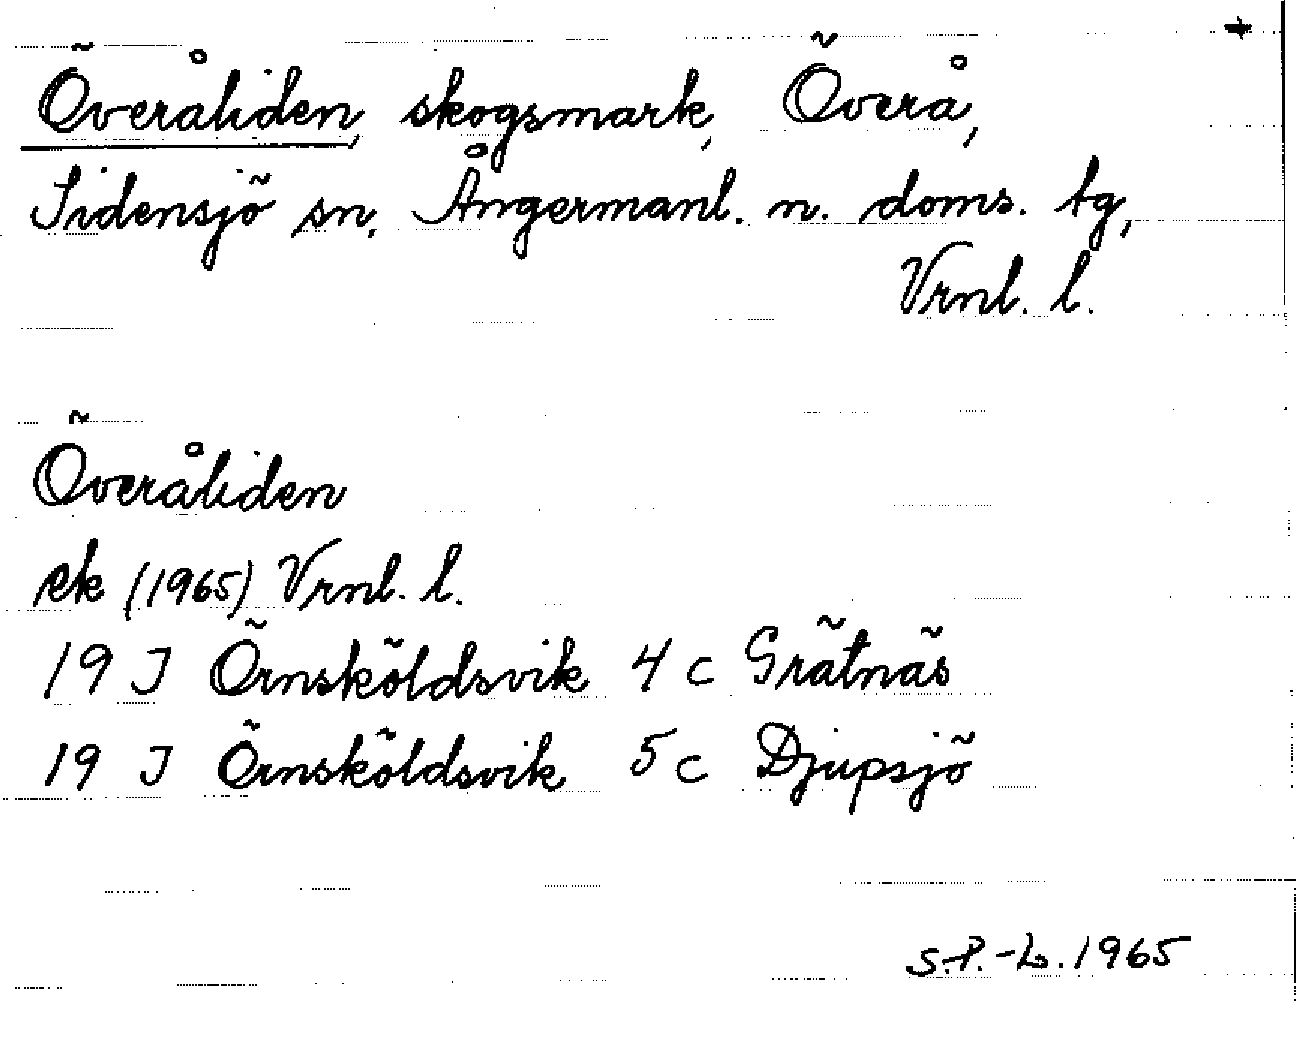 +
Överåliden, skogsmark, Överå,
Sidensjö sn, Ångermanl. n. doms. tg,
Vrnl. l.
Överåliden
ek (1965) Vrnl. l.
19 J Örnsköldsvik 4 c Grätnäs
19 J Örnsköldsvik 5 c Djupsjö
S.P.-L. 1965